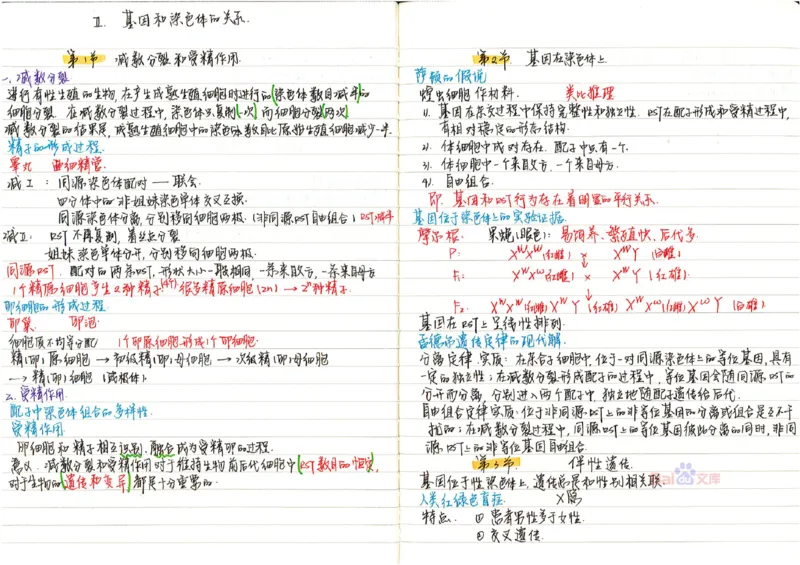 II. 基因和染色体的关系.
第1节 减数分裂和受精作用.
一.减数分裂
进行有性生殖的生物,在产生成熟生殖细胞时进行的(染色体数目减半)的
细胞分裂. 在减数分裂过程中,染色体只复制(一次)而细胞分裂(两次)
减数分裂的结果是,成熟生殖细胞中的染色体数目比原始生殖细胞减少一半.
精子的形成过程.
睾丸 曲细精管.
减I: 同源染色体配对 — 联会.
四分体中的非姐妹染色单体交叉互换.
同源染色体分离,分别移向细胞两极.(非同源RST自由组合) RST减半
减II: RST不再复制,着丝点分裂
姐妹染色单体分开,分别移向细胞两极.
同源RST. 配对的两条RST,形状大小一般相同,一条来自父方,一条来自母方
1个精原细胞产生2种精子(4个) 很多精原细胞(2n) → 2ⁿ种精子.
卵细胞的形成过程.
卵巢 卵泡
细胞质不均等分配 1个卵原细胞形成1个卵细胞.
精(卵)原细胞 → 初级精(卵)母细胞 → 次级精(卵)母细胞
→ 精(卵)细胞 (减极体)
二.受精作用.
配子中染色体组合的多样性.
受精作用
卵细胞和精子相互识别.融合成为受精卵的过程.
意义. 减数分裂和受精作用对于维持生物前后代细胞中(RST数目的恒定),
对于生物的(遗传和变异)都是十分重要的.
第2节 基因在染色体上
萨顿的假说
蝗虫细胞作材料. 类比推理
1). 基因在杂交过程中保持完整性和独立性. RST在配子形成和受精过程中,
有相对稳定的形态结构.
2). 体细胞中成对存在. 配子中只有一个.
3). 体细胞中一个来自父方.一个来自母方.
4). 自由组合.
即. 基因和RST行为存在着明显的平行关系.
基因位于染色体上的实验证据.
摩尔根: 果蝇(眼色): 易饲养、繁殖快、后代多.
P: XᵂXᵂ(红雌) × XʷY (白雄)
F₁: XᵂXʷ (红雌) × XᵂY (红雄)
F₂. XᵂXᵂ(红雌) XᵂY (红雄) XᵂXʷ(红雌) XʷY (白雄)
基因在RST上呈线性排列.
孟德尔遗传定律的现代解.
分离定律 实质: 在杂合子细胞中,位于一对同源染色体上的等位基因,具有
一定的独立性; 在减数分裂形成配子的过程中,等位基因会随同源RST的
分开而分离,分别进入两个配子中,独立地随配子遗传给后代.
自由组合定律实质: 位于非同源RST上的非等位基因的分离或组合是互不干
扰的; 在减数分裂过程中,同源RST上的等位基因彼此分离的同时,非同
源RST上的非等位基因自由组合.
第3节. 伴性遗传.
基因位于性染色体上,遗传总是和性别相关联.
人类红绿色盲症. X隐
特点. ① 患者男性多于女性.
② 交叉遗传.
Bai 文库